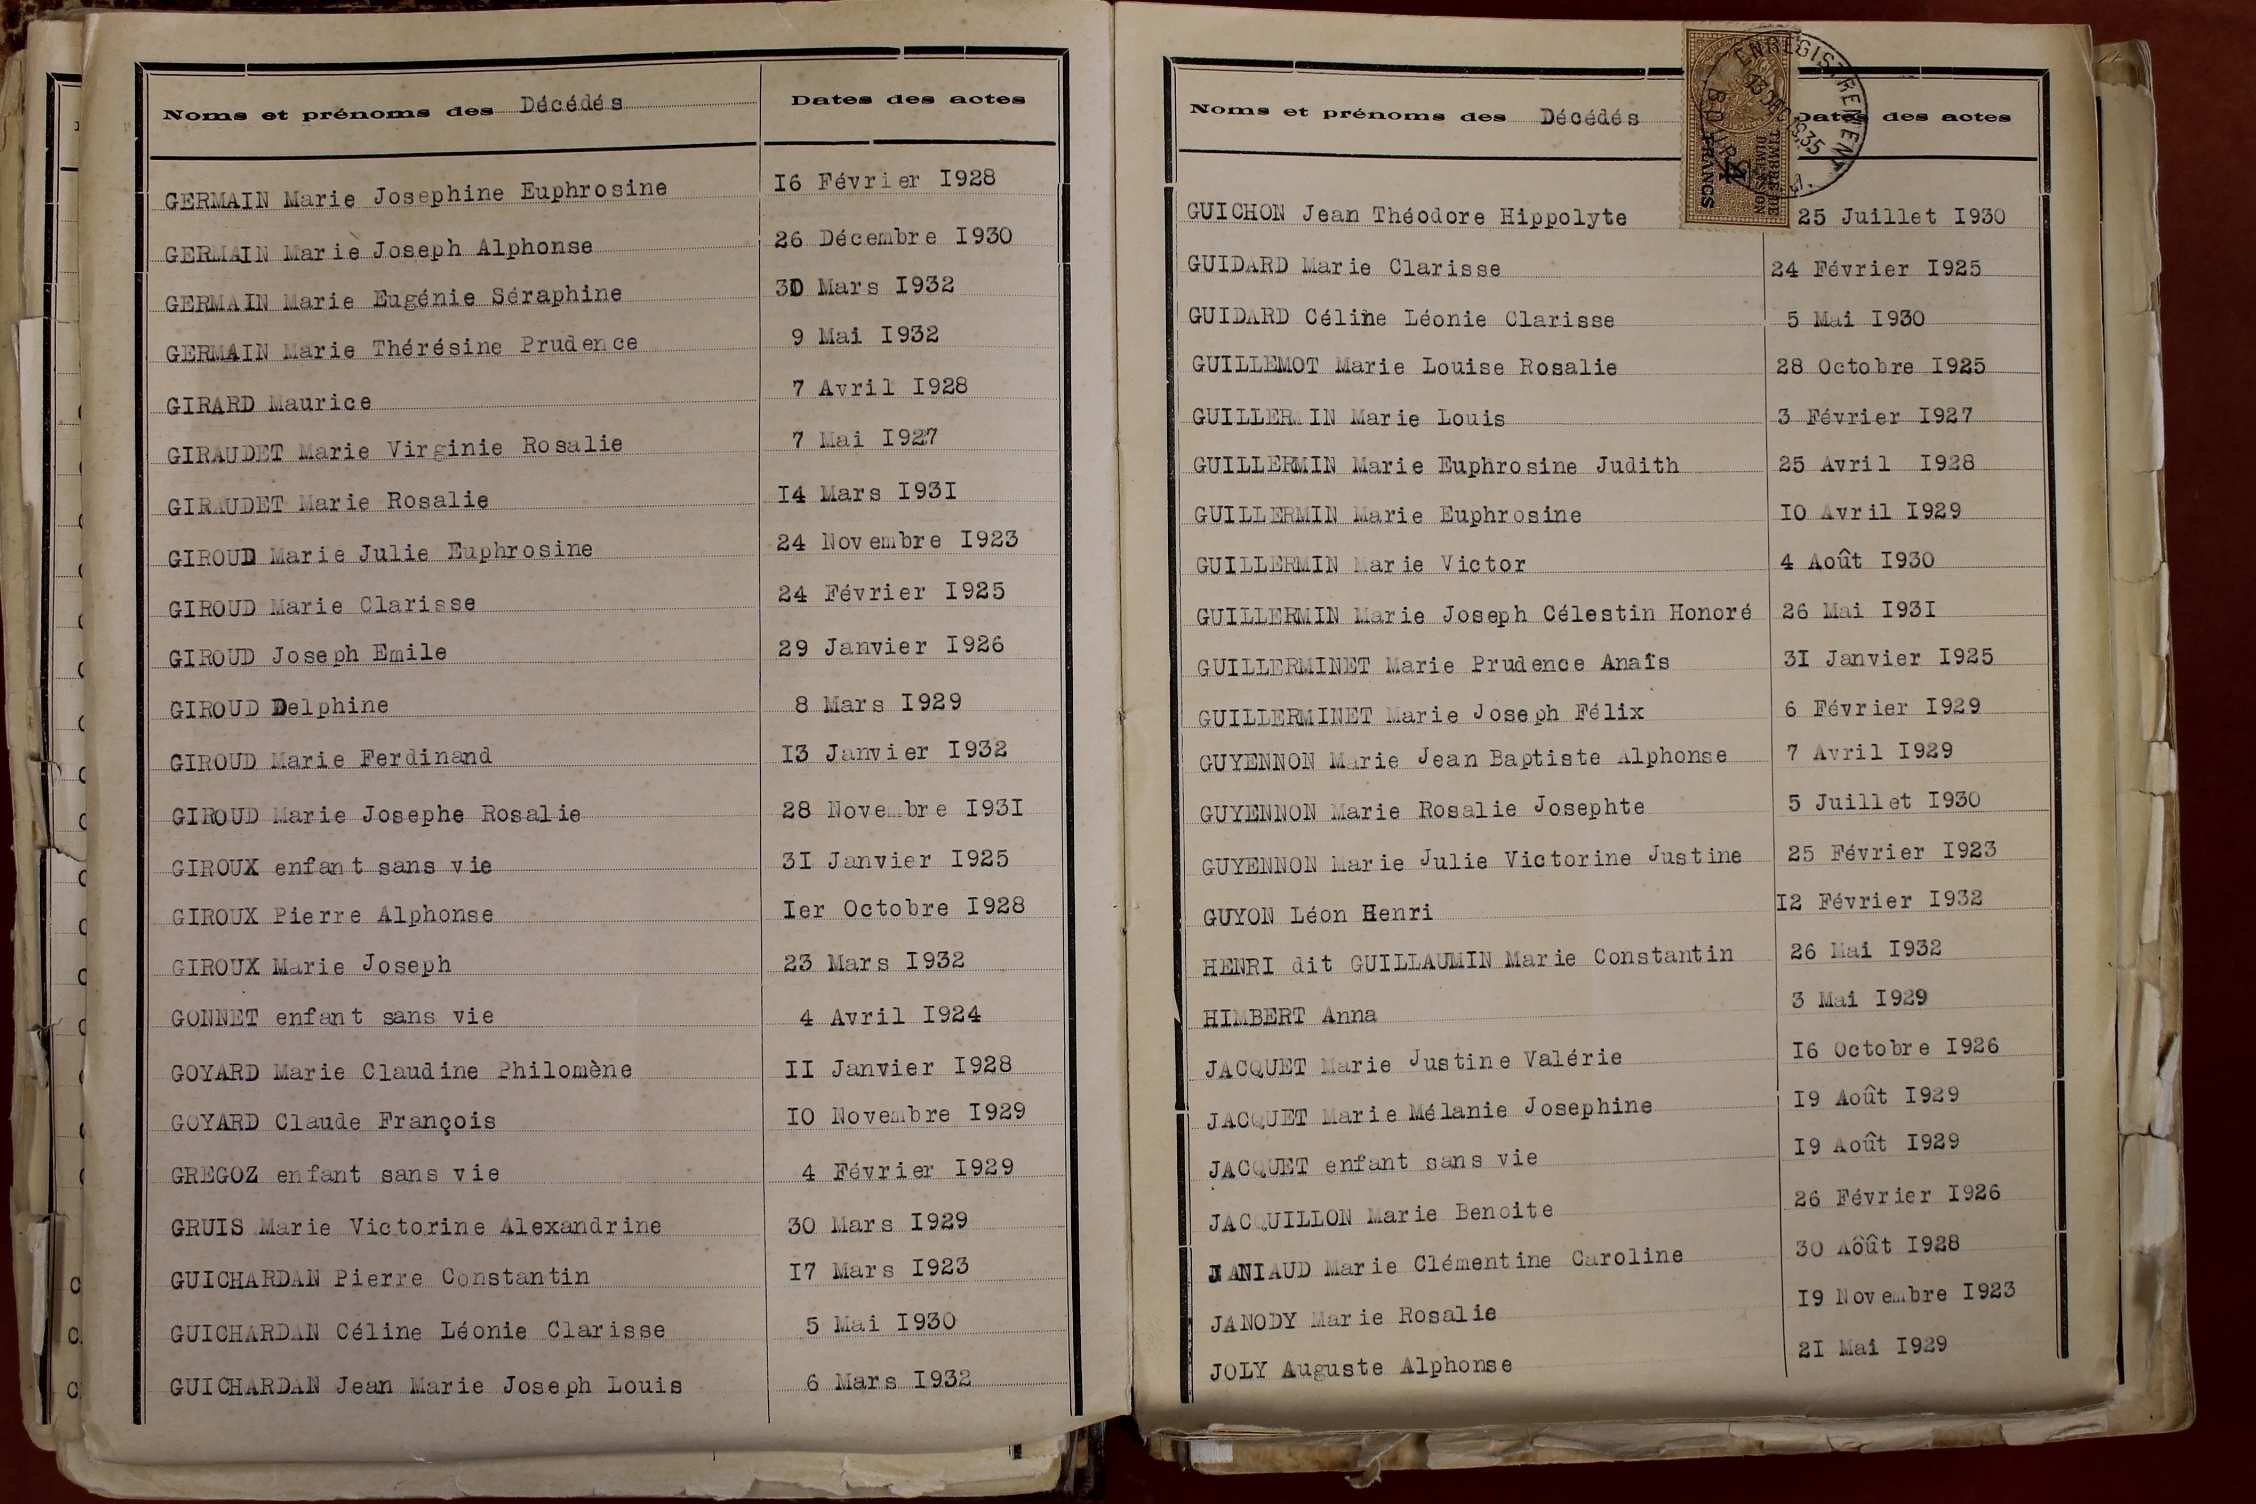 Noms et prénoms des Décédés Dates des actes
GERMAIN Marie Josephine Euphrosine 16 Février 1928
GERMAIN Marie Joseph Alphonse 26 Décembre 1930
GERMAIN Marie Eugénie Séraphine 30 Mars 1932
GERMAIN Marie Thérésine Prudence 9 Mai 1932
GIRARD Maurice 7 Avril 1928
GIRAUDET Marie Virginie Rosalie 7 Mai 1927
GIRAUDET Marie Rosalie 14 Mars 1931
GIROUD Marie Julie Euphrosine 24 Novembre 1923
GIROUD Marie Clarisse 24 Février 1925
GIROUD Joseph Emile 29 Janvier 1926
GIROUD Delphine 8 Mars 1929
GIROUD Marie Ferdinand 13 Janvier 1932
GIROUD Marie Josephe Rosalie 28 Novembre 1931
GIROUX enfant sans vie 31 Janvier 1925
GIROUX Pierre Alphonse Ier Octobre 1928
GIROUX Marie Joseph 23 Mars 1932
GONNET enfant sans vie 4 Avril 1924
GOYARD Marie Claudine Philomène 11 Janvier 1928
GOYARD Claude François 10 Novembre 1929
GREGOZ enfant sans vie 4 Février 1929
GRUIS Marie Victorine Alexandrine 30 Mars 1929
GUICHARDAN Pierre Constantin 17 Mars 1923
GUICHARDAN Céline Léonie Clarisse 5 Mai 1930
GUICHARDAN Jean Marie Joseph Louis 6 Mars 1932
Noms et prénoms des Décédés Dates des actes
ENREGISTREMENT
13 DEC 1935
TIMBRE DE DIMENSION
4 FRANCS
GUICHON Jean Théodore Hippolyte 25 Juillet 1930
GUIDARD Marie Clarisse 24 Février 1925
GUIDARD Céline Léonie Clarisse 5 Mai 1930
GUILLEMOT Marie Louise Rosalie 28 Octobre 1925
GUILLERMIN Marie Louis 3 Février 1927
GUILLERMIN Marie Euphrosine Judith 25 Avril 1928
GUILLERMIN Marie Euphrosine 10 Avril 1929
GUILLERMIN Marie Victor 4 Août 1930
GUILLERMIN Marie Joseph Célestin Honoré 26 Mai 1931
GUILLERMINET Marie Prudence Anaîs 31 Janvier 1925
GUILLERMINET Marie Joseph Félix 6 Février 1929
GUYENNON Marie Jean Baptiste Alphonse 7 Avril 1929
GUYENNON Marie Rosalie Josephte 5 Juillet 1930
GUYENNON Marie Julie Victorine Justine 25 Février 1923
GUYON Léon Henri 12 Février 1932
HENRI dit GUILLAUMIN Marie Constantin 26 Mai 1932
HIMBERT Anna 3 Mai 1929
JACQUET Marie Justine Valérie 16 Octobre 1926
JACQUET Marie Mélanie Josephine 19 Août 1929
JACQUET enfant sans vie 19 Août 1929
JACQUILLON Marie Benoite 26 Février 1926
JANIAUD Marie Clémentine Caroline 30 Aôût 1928
JANODY Marie Rosalie 19 Novembre 1923
JOLY Auguste Alphonse 21 Mai 1929